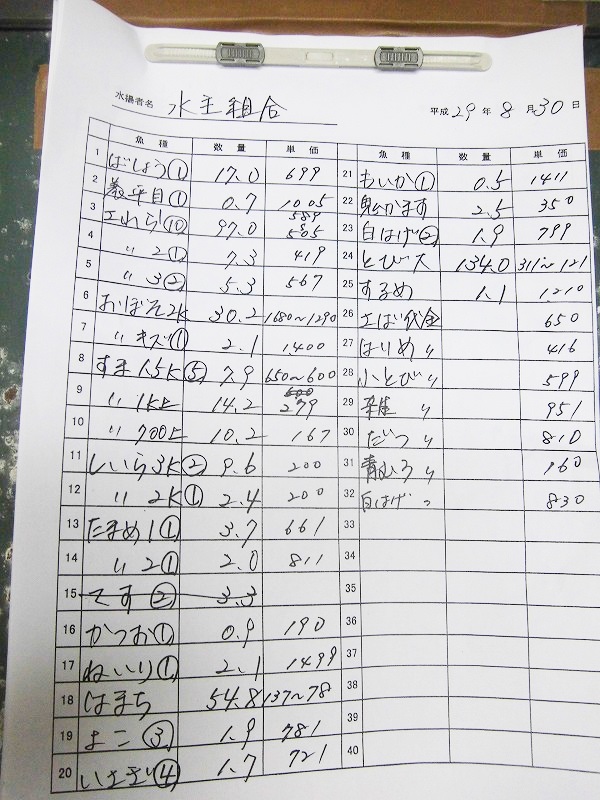 水揚者名 水主組合 平成29年8月30日
魚種 数量 単価
1 ばしょう① 17.0 699
2 養平目① 0.7 1005
3 エれら⑩ 97.0 589 585
4 〃2① 7.3 419
5 〃3② 5.3 567
6 おぼそ2K 30.2 1680~1290
7 〃キズ① 2.1 1400
8 すま1.5K⑤ 7.9 650~600
9 〃1K上 14.2 279
10 〃700上 10.2 167
11 しいら3K② 9.6 200
12 〃2K① 2.4 200
13 たまめ1① 3.7 661
14 〃2① 2.0 811
15 てす② 3.3
16 かつお① 0.9 190
17 ねいり① 2.1 1499
18 はまち 54.8 137~78
19 よこ③ 1.9 781
20 いさぎ④ 1.7 721
魚種 数量 単価
21 もいか① 0.5 1411
22 鬼かます 2.5 350
23 白はげ② 1.9 799
24 とび大 134.0 311~121
25 するめ 1.1 1210
26 さば代金 650
27 はりめ〃 416
28 小とび〃 599
29 雑〃 951
30 だつ〃 810
31 青むろ〃 160
32 白はげ〃 830
33
34
35
36
37
38
39
40